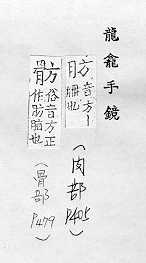 龍龕手鏡
肪音方丨
也
(肉部P405)
俗音方正
作肪脂也
(骨部P479)